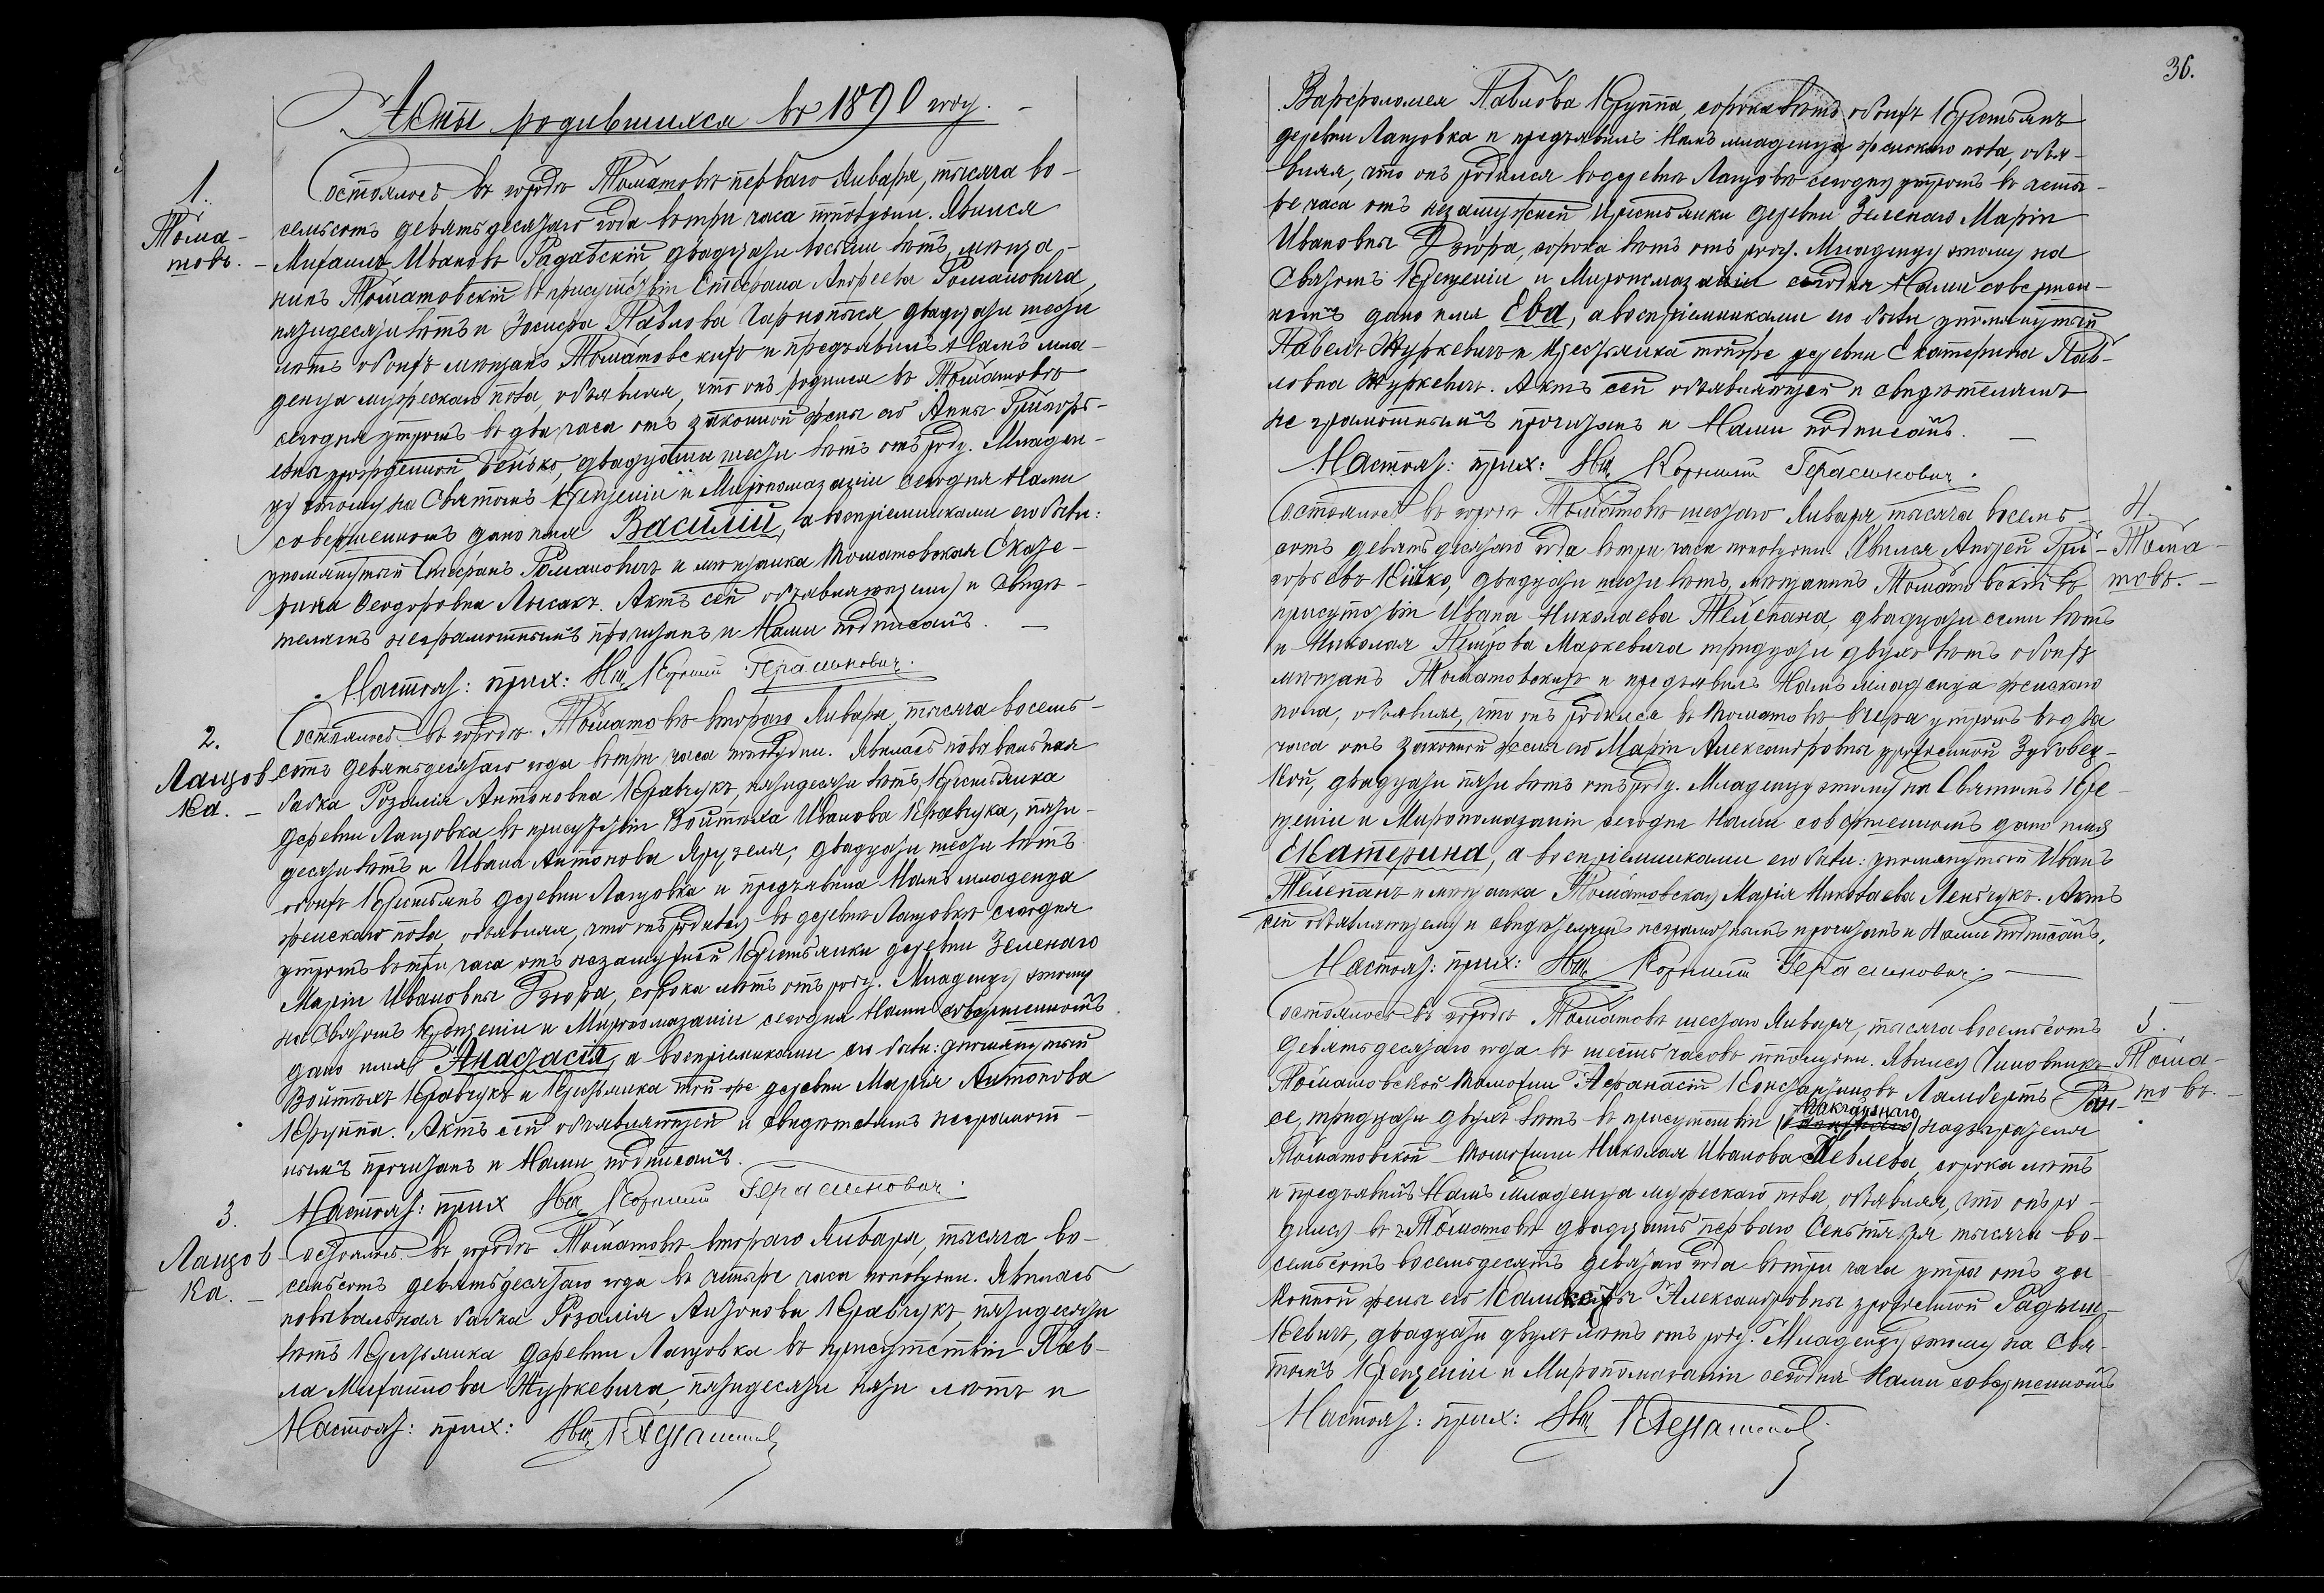 Акты родившихся въ 1890 году.
1.
Тома-
шовъ.
Состоялось въ городѣ Томашовѣ перваго Января, тысяча во-
семьсотъ девятьдесятаго года въ три часа пополудни. Явился
Михаилъ Ивановъ Радавскій двадцати восьми лѣтъ, мѣща-
нинъ Томашовскій въ присутствіи Стефана Андреева Романовича,
пятидесяти лѣтъ и Іосифа Павлова Чарнопыся, двадцати шести
лѣтъ обоихъ мѣщанъ Томашовскихъ и предъявилъ Намъ мла-
денца мужескаго пола, объявляя, что онъ родился въ Томашовѣ
сегодня утромъ въ два часа отъ законной жены его Анны Григорь-
евны урожденной Сенько, двадцати шести лѣтъ отъ роду. Младен-
цу этому на Святомъ Крещеніи и Миропомазаніи сегодня Нами
совершенномъ дано имя Василій, а воспріемниками его были:
упомянутый Стефанъ Романовичъ и мѣщанка Томашовская Екате-
рина Феодоровна Лысакъ. Актъ сей объявляющему и свидѣ-
телямъ неграмотнымъ прочитанъ и Нами подписанъ.
Настоят: прих: Свщ Корнилій Герасимовичъ.
2.
Ланцов
ка.
Состоялось въ городѣ Томашовѣ втораго Января, тысяча восемь-
сотъ девятьдесятаго года въ три часа пополудни. Явилась повивальная
бабка Розалія Антоновна Кравчукъ, пятидесяти лѣтъ, Крестьянка
деревни Ланцовка въ присутствіи Войтѣха Иванова Кравчука, пяти-
десяти лѣтъ и Ивана Антонова Ярузеля, двадцати шести лѣтъ
обоихъ Крестьянъ деревни Ланцовка и предъявила Намъ младенца
женскаго пола, объявляя, что онъ родился въ деревнѣ Ланцовкѣ сегодня
утромъ въ три часа отъ незамужней Крестьянки деревни Зеленаго
Маріи Ивановны Дзюра, сорока лѣтъ отъ роду. Младенцу этому
на Святомъ Крещеніи и Миропомазаніи сегодня Нами совершенномъ
дано имя Анастасія, а воспріемниками его были: упомянутый
Войтѣхъ Кравчукъ и Крестьянка той-же деревни Марія Антонова
Круппа. Актъ сей объявляющей и свидѣтелямъ неграмот-
нымъ прочитанъ и Нами подписанъ.
Настоят: прих Свщ Корнилій Герасимовичъ.
3.
Ланцов
ка.
Состоялось въ городѣ Томашовѣ втораго Января, тысяча во-
семьсотъ девятьдесятаго года въ четыре часа пополудни. Явилась
повивальная бабка Розалія Антонова Кравчукъ, пятидесяти
лѣтъ Крестьянка деревни Ланцовка въ присутствіи Пав-
ла Михайлова Журкевича, пятидесяти пяти лѣтъ и
Настоят: прих: Свщ
36.
Варфоломея Павлова Круппа, сорока лѣтъ обоихъ Крестьянъ
деревни Ланцовка и предъявила Намъ младенца женскаго пола, объя-
вляя, что онъ родился въ деревнѣ Ланцовкѣ сегодня утромъ въ четы-
ре часа отъ незамужней Крестьянки деревни Зеленаго Маріи
Ивановны Дзюра, сорока лѣтъ отъ роду. Младенцу этому на
Святомъ Крещеніи и Миропомазаніи сегодня Нами совершен-
номъ дано имя Ева, а воспріемниками его были упомянутый
Павелъ Журкевичъ и Крестьянка той-же деревни Екатерина Пав-
ловна Журкевичъ. Актъ сей объявляющей и свидѣтелямъ
не грамотнымъ прочитанъ и Нами подписанъ.
Настоят: прих: Свщ Корнилій Герасимовичъ.
4.
Тома-
шовъ.
Состоялось въ городѣ Томашовѣ шестаго Января, тысяча восемь
сотъ девятьдесятаго года въ три часа пополудни. Явился Андрей Гри-
горьевъ Кійко, двадцати шести лѣтъ, мѣщанинъ Томашовскій въ
присутствіи Ивана Николаева Телепана, двадцати семи лѣтъ
и Николая Петрова Маркевича тридцати двухъ лѣтъ обоихъ
мѣщанъ Томашовскихъ и предъявилъ Намъ младенца женскаго
пола, объявляя, что онъ родился въ Томашовѣ вчера утромъ въ два
часа отъ законной жены его Маріи Александровны урожденной Зубовец-
кой, двадцати пяти лѣтъ отъ роду. Младенцу этому на Святомъ Кре-
щеніи и Миропомазаніи сегодня Нами совершенномъ дано имя
Екатерина, а воспріемниками его были: упомянутый Иванъ
Телепанъ и мѣщанка Томашовская Марія Николаева Ленчукъ. Актъ
сей объявляющему и свидѣтелямъ неграмотнымъ прочитанъ и Нами подписанъ.
Настоят: прих: Свщ Корнилій Герасимовичъ.
5.
Тома-
шовъ.
Состоялось въ городѣ Томашовѣ шестаго Января, тысяча восемьсотъ
девятьдесятаго года въ шесть часовъ пополудни. Явился Чиновникъ
Томашовской Таможни Афанасій Константиновъ Ламбертъ Ган-
се, тридцати двухъ лѣтъ въ присутствіи надзирателя
Томашовской Таможни Николая Иванова сорока лѣтъ
и предъявилъ Намъ младенца мужескаго пола, объявляя, что онъ ро-
дился въ г. Томашовѣ двадцать перваго Сентября тысяча во-
семьсотъ восемьдесятъ девятаго года въ три часа утра отъ за
конной жены его Александровны урожденной Радыш-
кевичъ, двадцати двухъ лѣтъ отъ роду. Младенцу этому на Свя-
томъ Крещеніи и Миропомазаніи сегодня Нами совершенномъ
Настоят: прих: Свщ